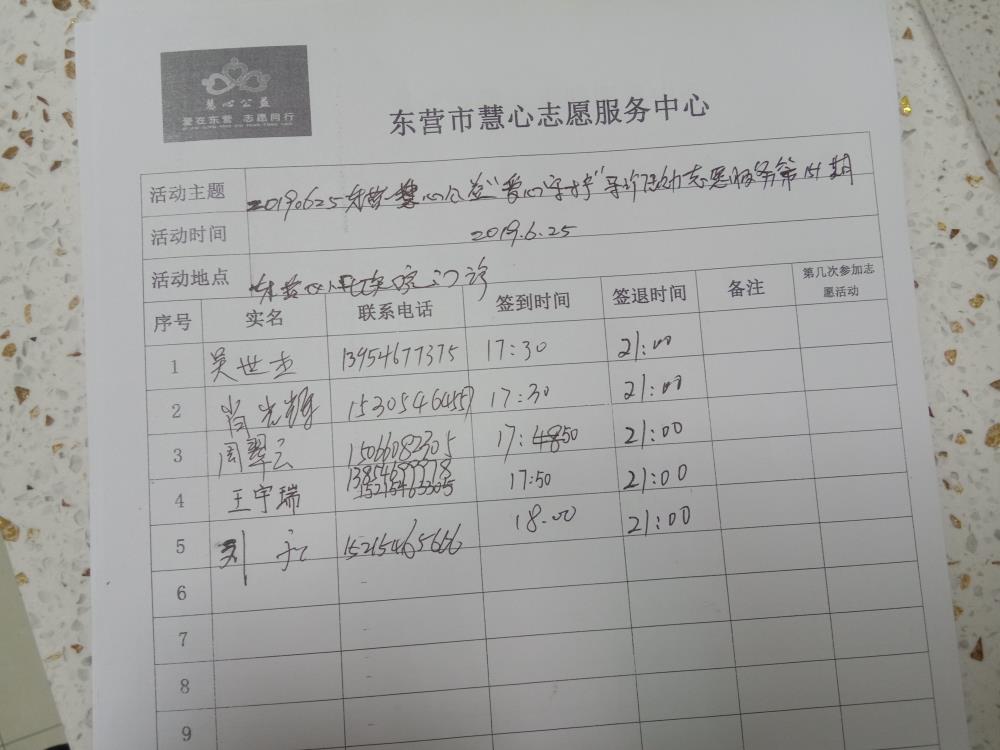 慧心公益
爱在东营 志愿同行
东营市慧心志愿服务中心
活动主题 2019.6.25 慧心公益“ 导诊活动志愿服务第 期
活动时间 2019.6.25
活动地点 人民医院门诊
序号 实名 联系电话 签到时间 签退时间 备注 第几次参加志愿活动
1 吴世杰 13954677375 17:30 21:00
2 尚光辉 17:30 21:00
3 周翠云 15066082305 17:50 21:00
4 王宇瑞 17:50 21:00
5 刘 18.00 21:00
6
7
8
9